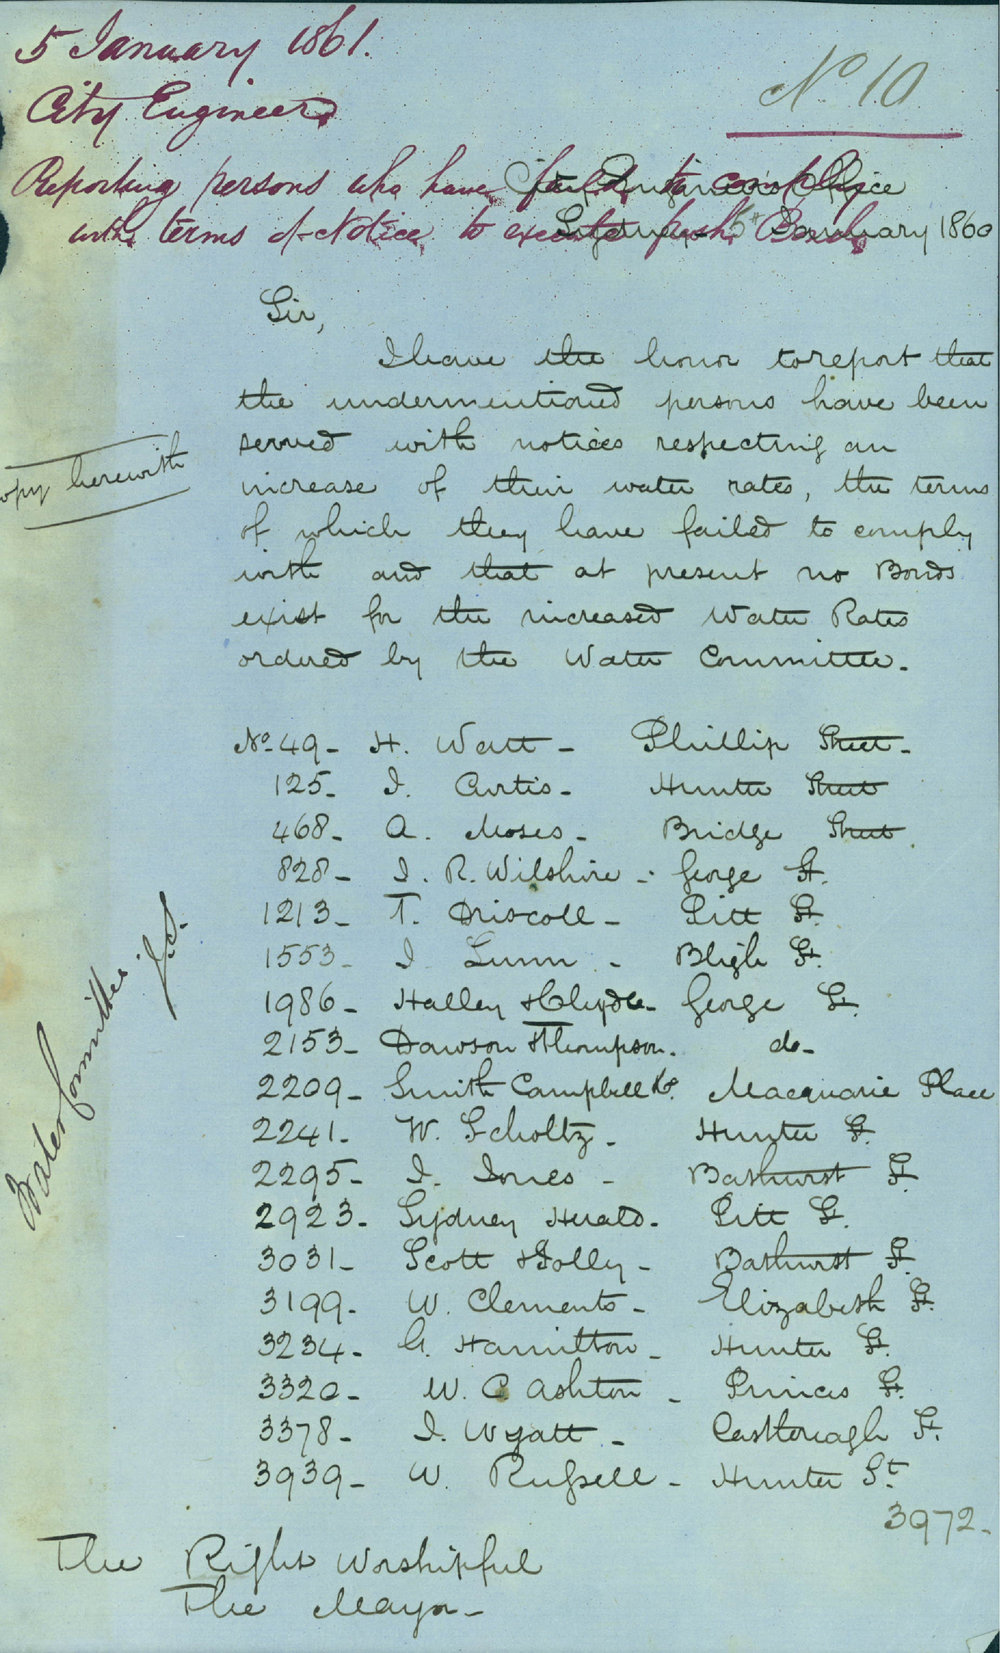 5 January 1861.
City Engineer
No 10
Reporting persons who have failed to comply
with terms of Notice, to execute fresh Bond,
City Engineers Office
Sydney 5th January 1860
Sir,
I have the honor to report that
the undermentioned persons have been
served with notices respecting an
increase of their water rates, the terms
of which they have failed to comply
with and that at present no Bonds
exist for the increased Water Rates
ordered by the Water Committee.
opy herewith
No. 49 - H. Watt - Phillip Street -
125 - I. Curtis - Hunter Street
468 - A. Moses - Bridge Street
828 - I. R. Wilshire - George St.
1213 - T. Driscoll - Pitt St.
1553 - I Lunn - Bligh St.
1986 - Halley & Clyde - George St.
2153 - Dawson & Thompson. do -
2209 - Smith Campbell & Co. Macquarie Place
2241 - W. Scholtz - Hunter St.
2295 - I. Jones - Bathurst St.
2923 - Sydney Herald - Pitt St.
3031 - Scott & Jolly - Bathurst St.
3199 - W. Clements - Elizabeth St.
3234 - G. Hamilton - Hunter St.
3320 - W. C Ashton - Princes St.
3378 - I. Wyatt - Castlereagh St.
3939 - W. Russell - Hunter St.
3972 -
Water Committee. J.S.
The Right Worshipful
The Mayor -